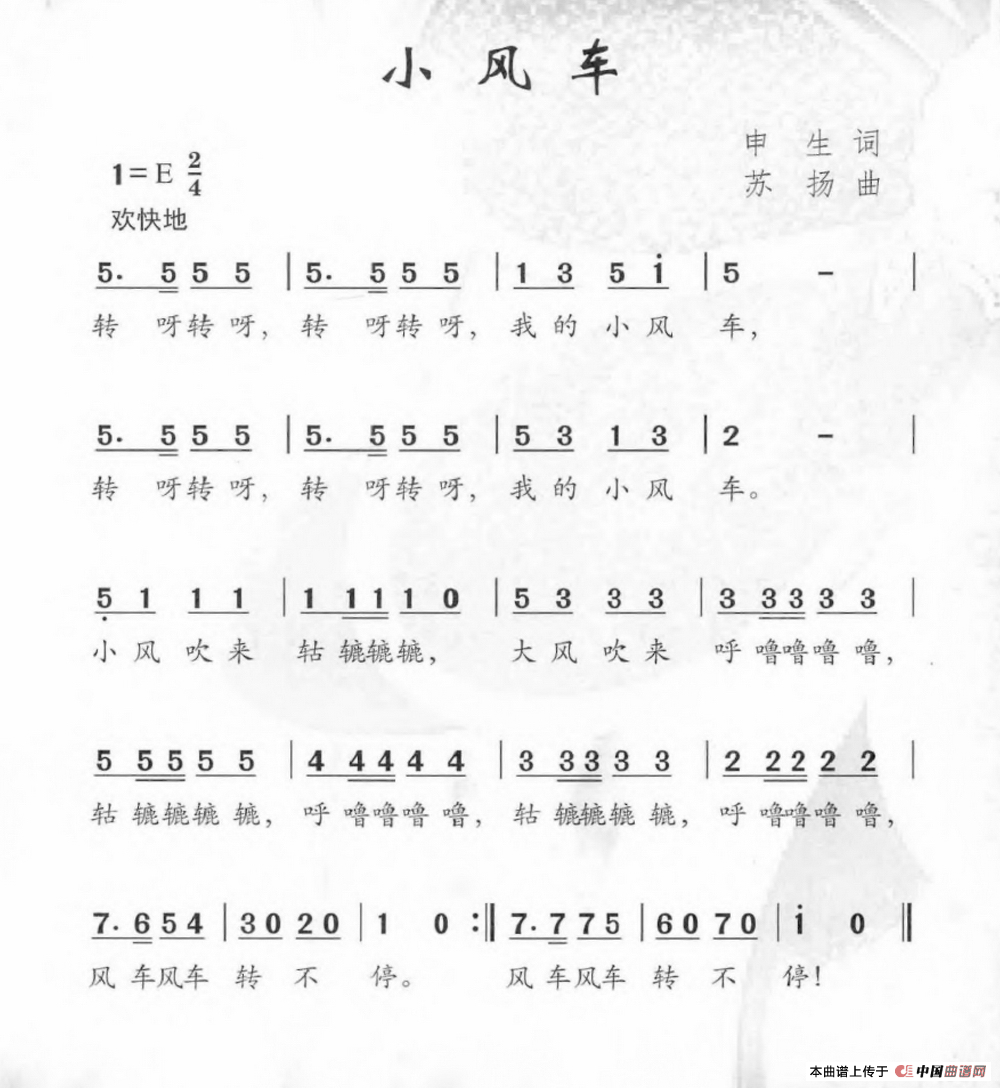 小风车
申生词
1=E 2/4
苏扬曲
欢快地
5. 5 5 5 | 5. 5 5 5 | 1 3 5 i | 5 - |
转 呀转 呀, 转 呀转 呀, 我的 小风 车,
5. 5 5 5 | 5. 5 5 5 | 5 3 1 3 | 2 - |
转 呀转 呀, 转 呀转 呀, 我的 小风 车。
5̣ 1 1 1 | 1 1 1 1 0 | 5 3 3 3 | 3 3 3 3 3 |
小风 吹来 轱 辘辘辘, 大风 吹来 呼 噜噜噜 噜,
5 5 5 5 5 | 4 4 4 4 4 | 3 3 3 3 3 | 2 2 2 2 2 |
轱 辘辘辘 辘, 呼 噜噜噜 噜, 轱 辘辘辘 辘, 呼 噜噜噜 噜,
7. 6 5 4 | 3 0 2 0 | 1 0 :‖ 7. 7 7 5 | 6 0 7 0 | i 0 ‖
风 车风车 转 不 停。 风 车风车 转 不 停!
本曲谱上传于 中国曲谱网